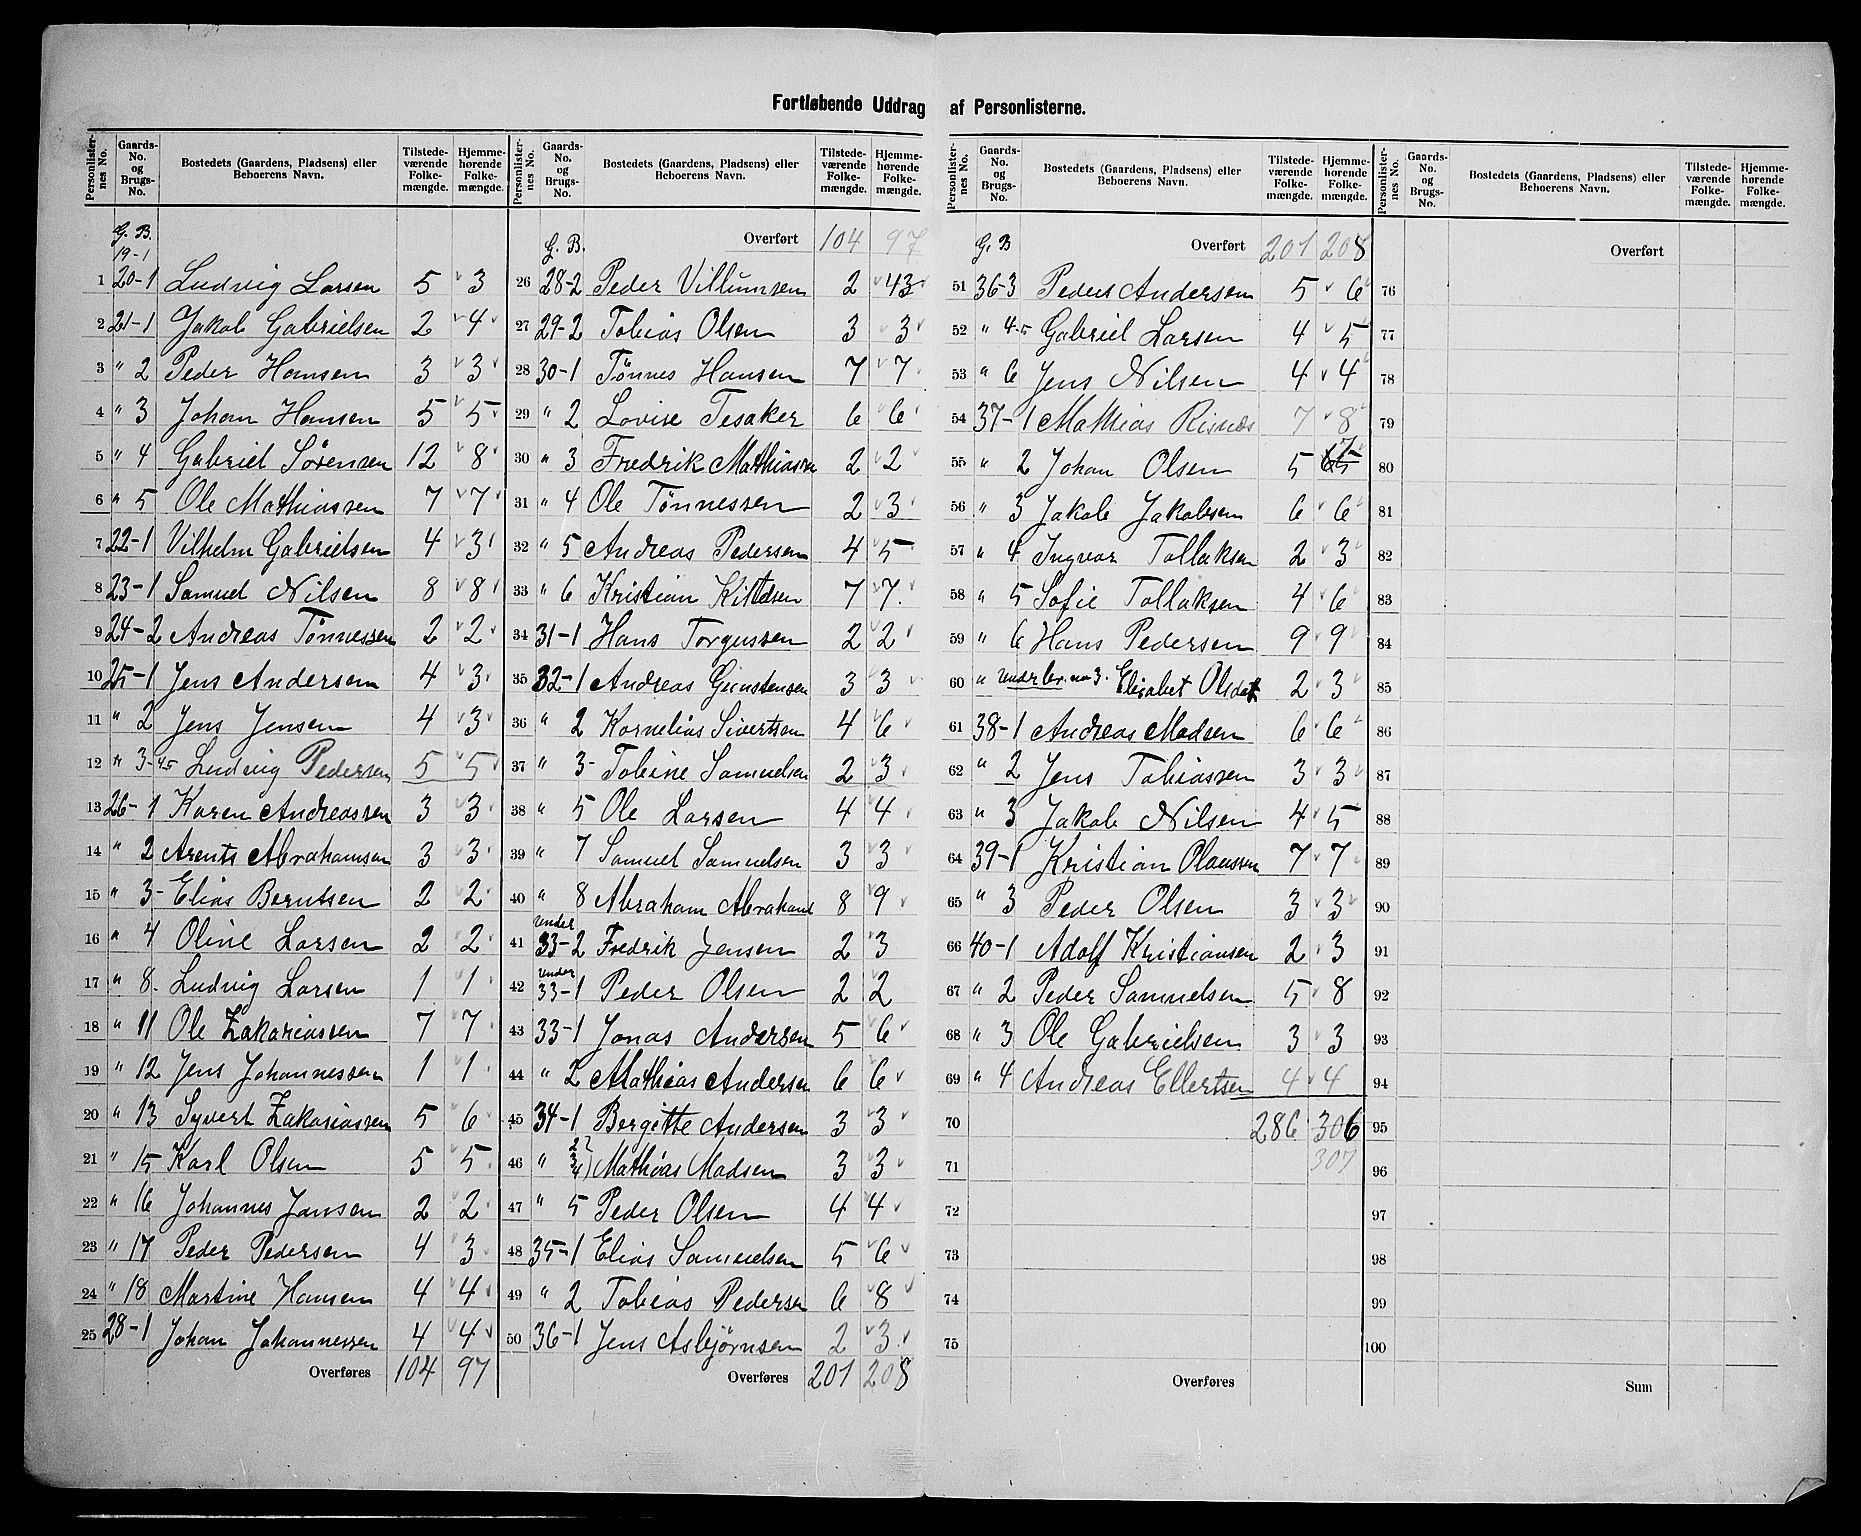 Fortløbende Uddrag af Personlisterne.
Personlisternes No. Gaards-No. og Brugs-No. Bostedets (Gaardens, Pladsens) eller Beboerens Navn. Tilstedeværende Folkemængde. Hjemmehørende Folkemængde.
G. B.
19-1
1 20-1 Ludvig Larsen 5 3
2 21-1 Jakob Gabrielsen 2 4
3 " 2 Peder Hansen 3 3
4 " 3 Johan Hansen 5 5
5 " 4 Gabriel Sørensen 12 8
6 " 5 Ole Mathiassen 7 7
7 22-1 Vilhelm Gabrielsen 4 3
8 23-1 Samuel Nilsen 8 8
9 24-2 Andreas Tønnessen 2 2
10 25-1 Jens Andersen 4 3
11 " 2 Jens Jensen 4 3
12 " 3-4-5 Ludvig Pedersen 5 5
13 26-1 Karen Andreassen 3 3
14 " 2 Arents Abrahamsen 3 3
15 " 3 Elias Berntsen 2 2
16 " 4 Oline Larsen 2 2
17 " 8. Ludvig Larsen 1 1
18 " 11 Ole Zakariassen 7 7
19 " 12 Jens Johannessen 1 1
20 " 13 Syvert Zakariassen 5 6
21 " 15 Karl Olsen 5 5
22 " 16 Johannes Jansen 2 2
23 " 17 Peder Pedersen 4 3
24 " 18 Martine Hansen 4 4
25 28-1 Johan Johannessen 4 4
Overføres 104 97
Personlisternes No. Gaards-No. og Brugs-No. Bostedets (Gaardens, Pladsens) eller Beboerens Navn. Tilstedeværende Folkemængde. Hjemmehørende Folkemængde.
G. B. Overført 104 97
26 28-2 Peder Villumsen 2 43
27 29-2 Tobias Olsen 3 3
28 30-1 Tønnes Hansen 7 7
29 " 2 Lovise Tesaker 6 6
30 " 3 Fredrik Mathiassen 2 2
31 " 4 Ole Tønnessen 2 3
32 " 5 Andreas Pedersen 4 5
33 " 6 Kristian Kittelsen 7 7
34 31-1 Hans Torgussen 2 2
35 32-1 Andreas Gunstensen 3 3
36 " 2 Kornelius Sivertsen 4 6
37 " 3 Tobine Samuelsen 2 3
38 " 5 Ole Larsen 4 4
39 " 7 Samuel Samuelsen 3 3
40 " 8 Abraham Abrahams 8 9
under
41 33-2 Fredrik Jensen 2 3
under
42 33-1 Peder Olsen 2 2
43 33-1 Jonas Andersen 5 6
44 " 2 Mathias Andersen 6 6
45 34-1 Bergitte Andersen 3 3
46 " 2 3 4) Mathias Madsen 3 3
47 " 5 Peder Olsen 4 4
48 35-1 Elias Samuelsen 5 6
49 " 2 Tobias Pedersen 6 8
50 36-1 Jens Asbjørnsen 2 3
Overføres 201 208
Personlisternes No. Gaards-No. og Brugs-No. Bostedets (Gaardens, Pladsens) eller Beboerens Navn. Tilstedeværende Folkemængde. Hjemmehørende Folkemængde.
G. B Overført 201 208
51 36-3 Peder Andersen 5 6
52 " 4-5 Gabriel Larsen 4 5
53 " 6 Jens Nilsen 4 4
54 37-1 Mathias Risnes 7 8
55 " 2 Johan Olsen 5 7
56 " 3 Jakob Jakobsen 6 6
57 " 4 Ingvar Tollaksen 2 3
58 " 5 Sofie Tollaksen 4 6
59 " 6 Hans Pedersen 9 9
60 " under br. no 3. Elisabet Olsdat 2 3
61 38-1 Andreas Madsen 6 6
62 " 2 Jens Tobiassen 3 3
63 " 3 Jakob Nilsen 4 5
64 39-1 Kristian Olaussen 7 7
65 " 3 Peder Olsen 3 3
66 40-1 Adolf Kristiansen 2 3
67 " 2 Peder Samuelsen 5 8
68 " 3 Ole Gabrielsen 3 3
69 " 4 Andreas Ellertsen 4 4
70 286 306
71 307
72
73
74
75
Overføres
Personlisternes No. Gaards-No. og Brugs-No. Bostedets (Gaardens, Pladsens) eller Beboerens Navn. Tilstedeværende Folkemængde. Hjemmehørende Folkemængde.
Overført
76
77
78
79
80
81
82
83
84
85
86
87
88
89
90
91
92
93
94
95
96
97
98
99
100
Sum